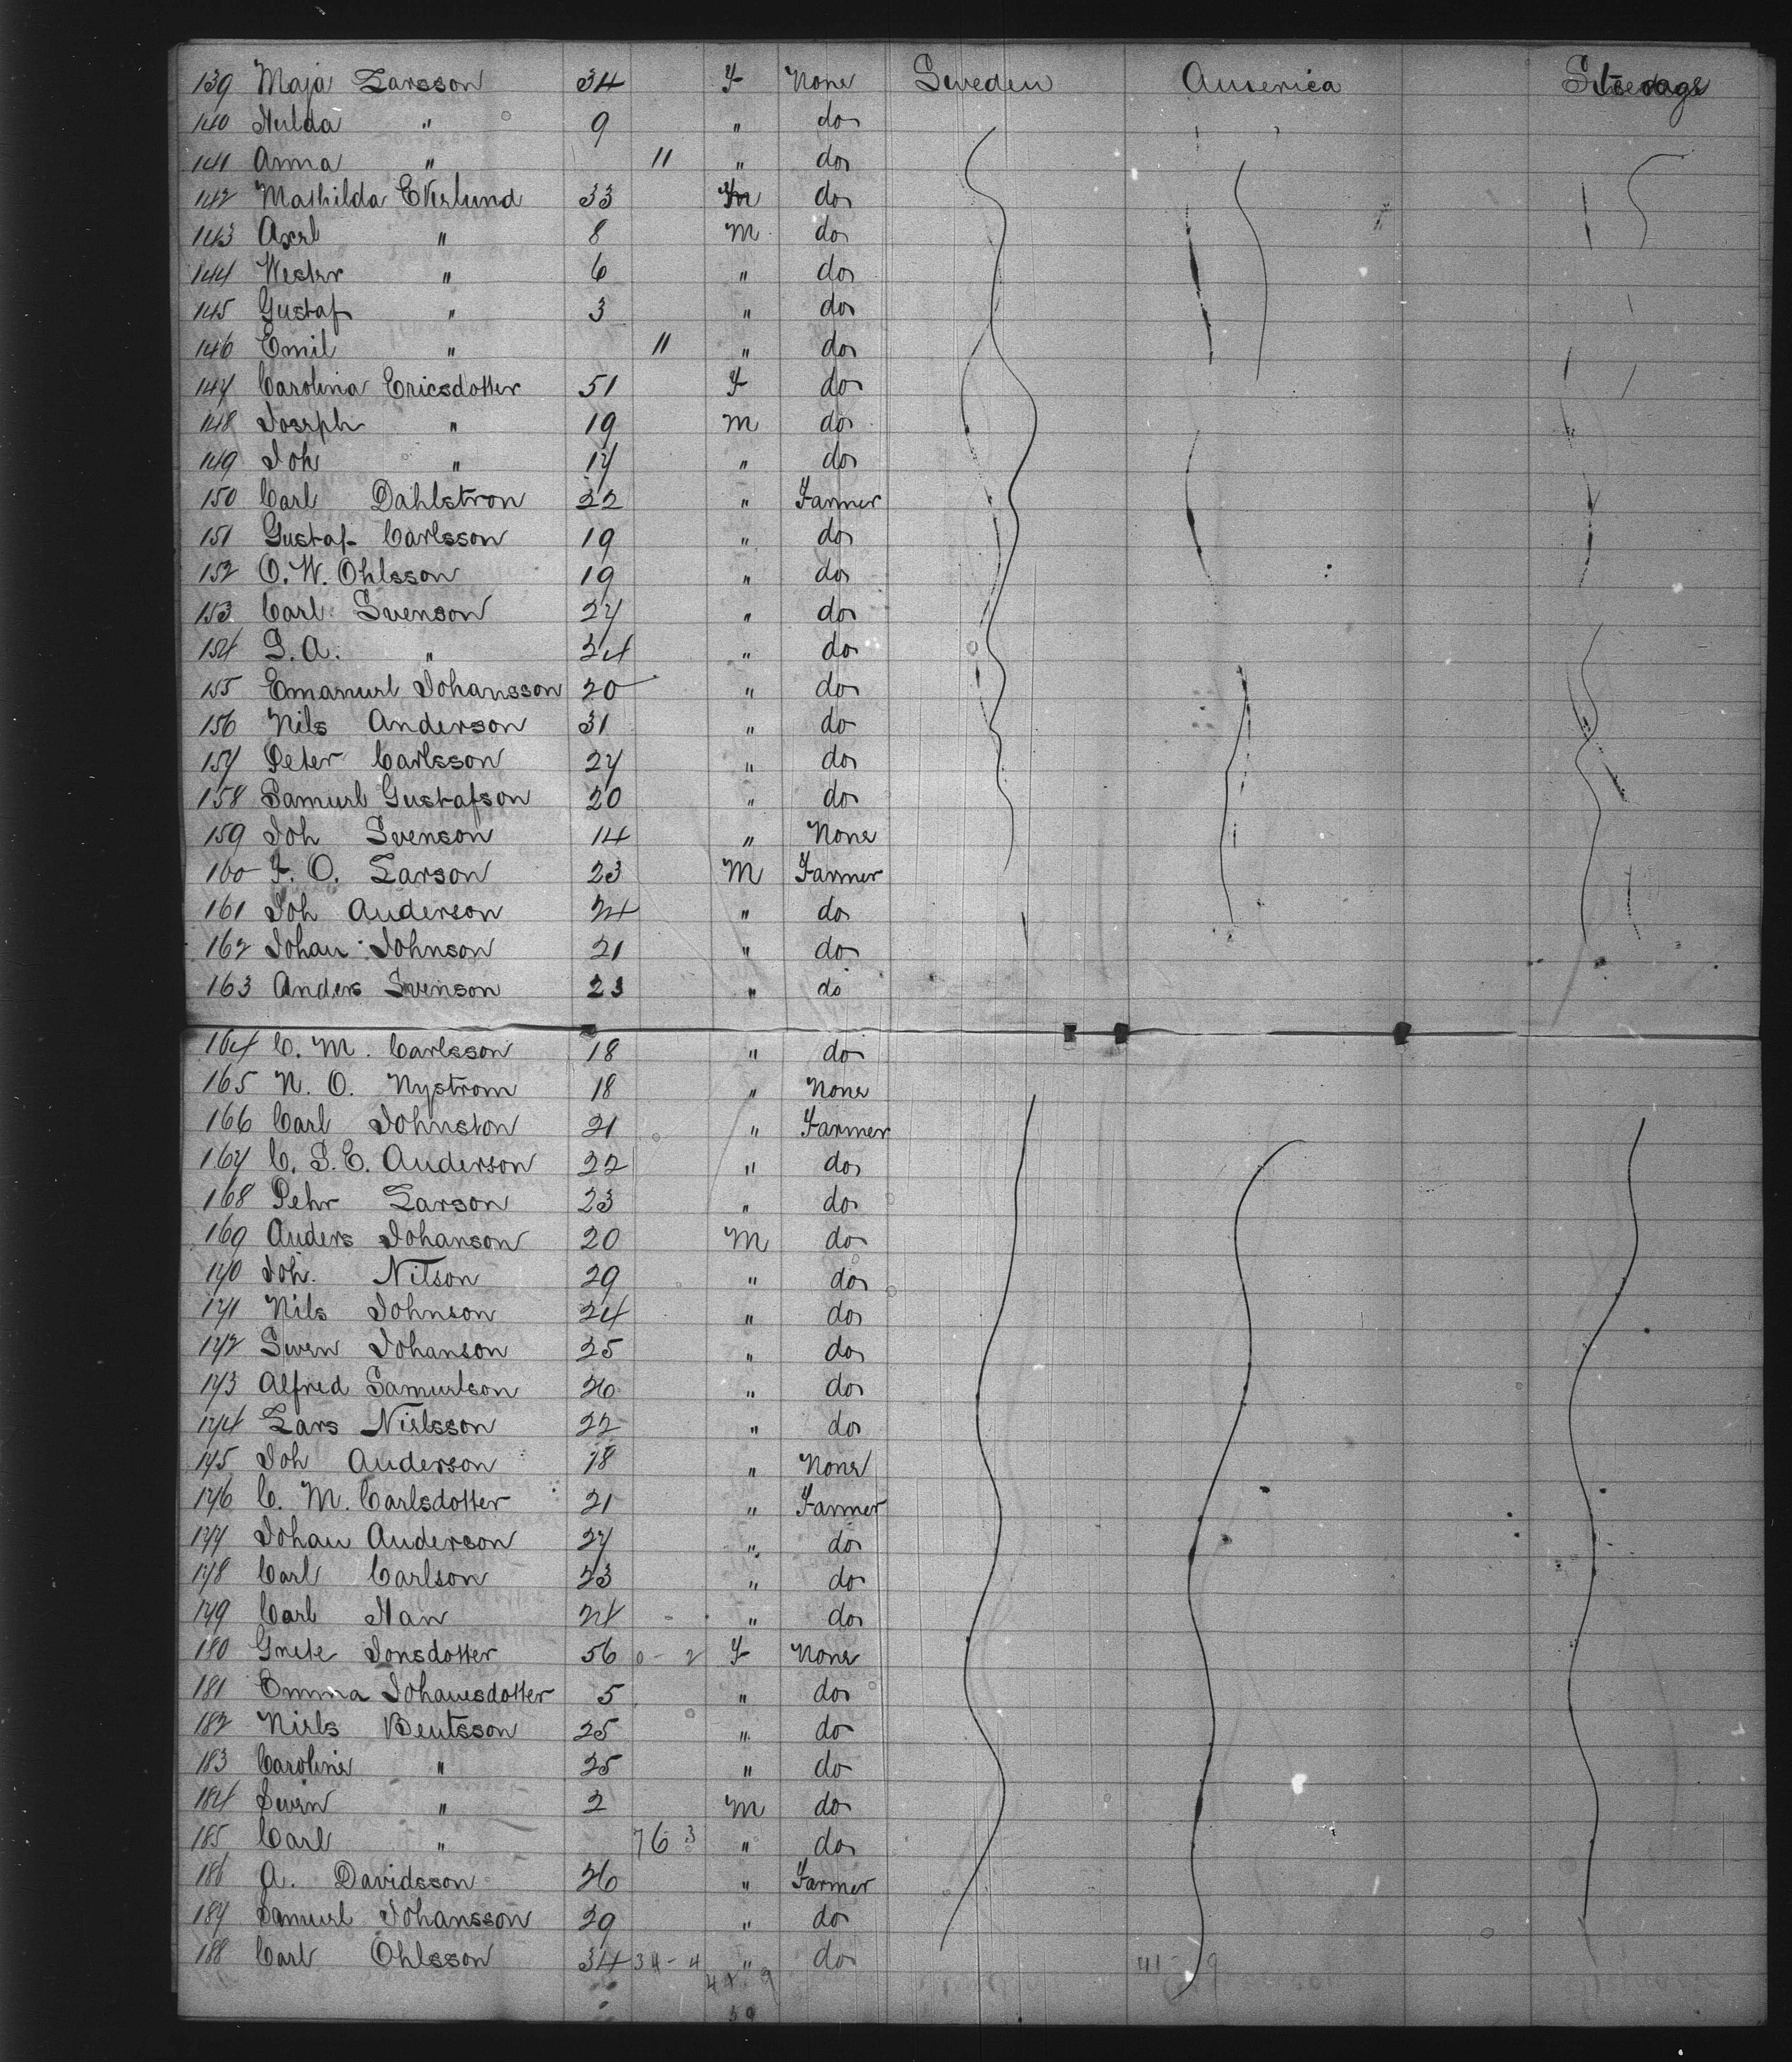 139 Maja Larsson 34 F None Sweden America Steerage
140 Hulda " 9 " do
141 Anna " 11 " do
142 Mathilda Ekerlund 33 do
143 Axel " 8 M do
144 Wester " 6 " do
145 Gustaf " 3 " do
146 Emil " 11 " do
147 Carolina Ericsdotter 51 F do
148 Joseph " 19 M do
149 Joh " 17 " do
150 Carl Dahlstron 22 " Farmer
151 Gustaf Carlsson 19 " do
152 O. W. Ohlsson 19 " do
153 Carl Svenson 27 " do
154 S. A. " 24 " do
155 Emanuel Johansson 20 " do
156 Nils Anderson 31 " do
157 Peter Carlsson 27 " do
158 Samuel Gustafson 20 " do
159 Joh Svenson 14 " None
160 F. O. Larson 23 M Farmer
161 Joh Anderson 24 " do
162 Johan Johnson 21 " do
163 Anders Svenson 23 " do
164 C. M. Carlsson 18 " do
165 N. O. Nystrom 18 " None
166 Carl Johnston 21 " Farmer
167 C. S. E. Anderson 22 " do
168 Pehr Larson 23 " do
169 Anders Johanson 20 M do
170 Joh. Nilson 29 " do
171 Nils Johnson 24 " do
172 Swen Johanson 25 " do
173 Alfred Samuelson 26 " do
174 Lars Nielsson 22 " do
175 Joh Anderson 18 " None
176 C. M. Carlsdotter 21 " Farmer
177 Johan Anderson 27 " do
178 Carl Carlson 23 " do
179 Carl Man 24 " do
180 Grete Jonsdotter 56 0 - 2 F None
181 Emma Johansdotter 5 " do
182 Niels Bentsson 25 " do
183 Caroline " 25 " do
184 Swen " 2 M do
185 Carl " 76 3 " do
186 A. Davidsson 26 " Farmer
187 Samuel Johansson 29 " do
188 Carl Ohlsson 34 34 - 4 " do